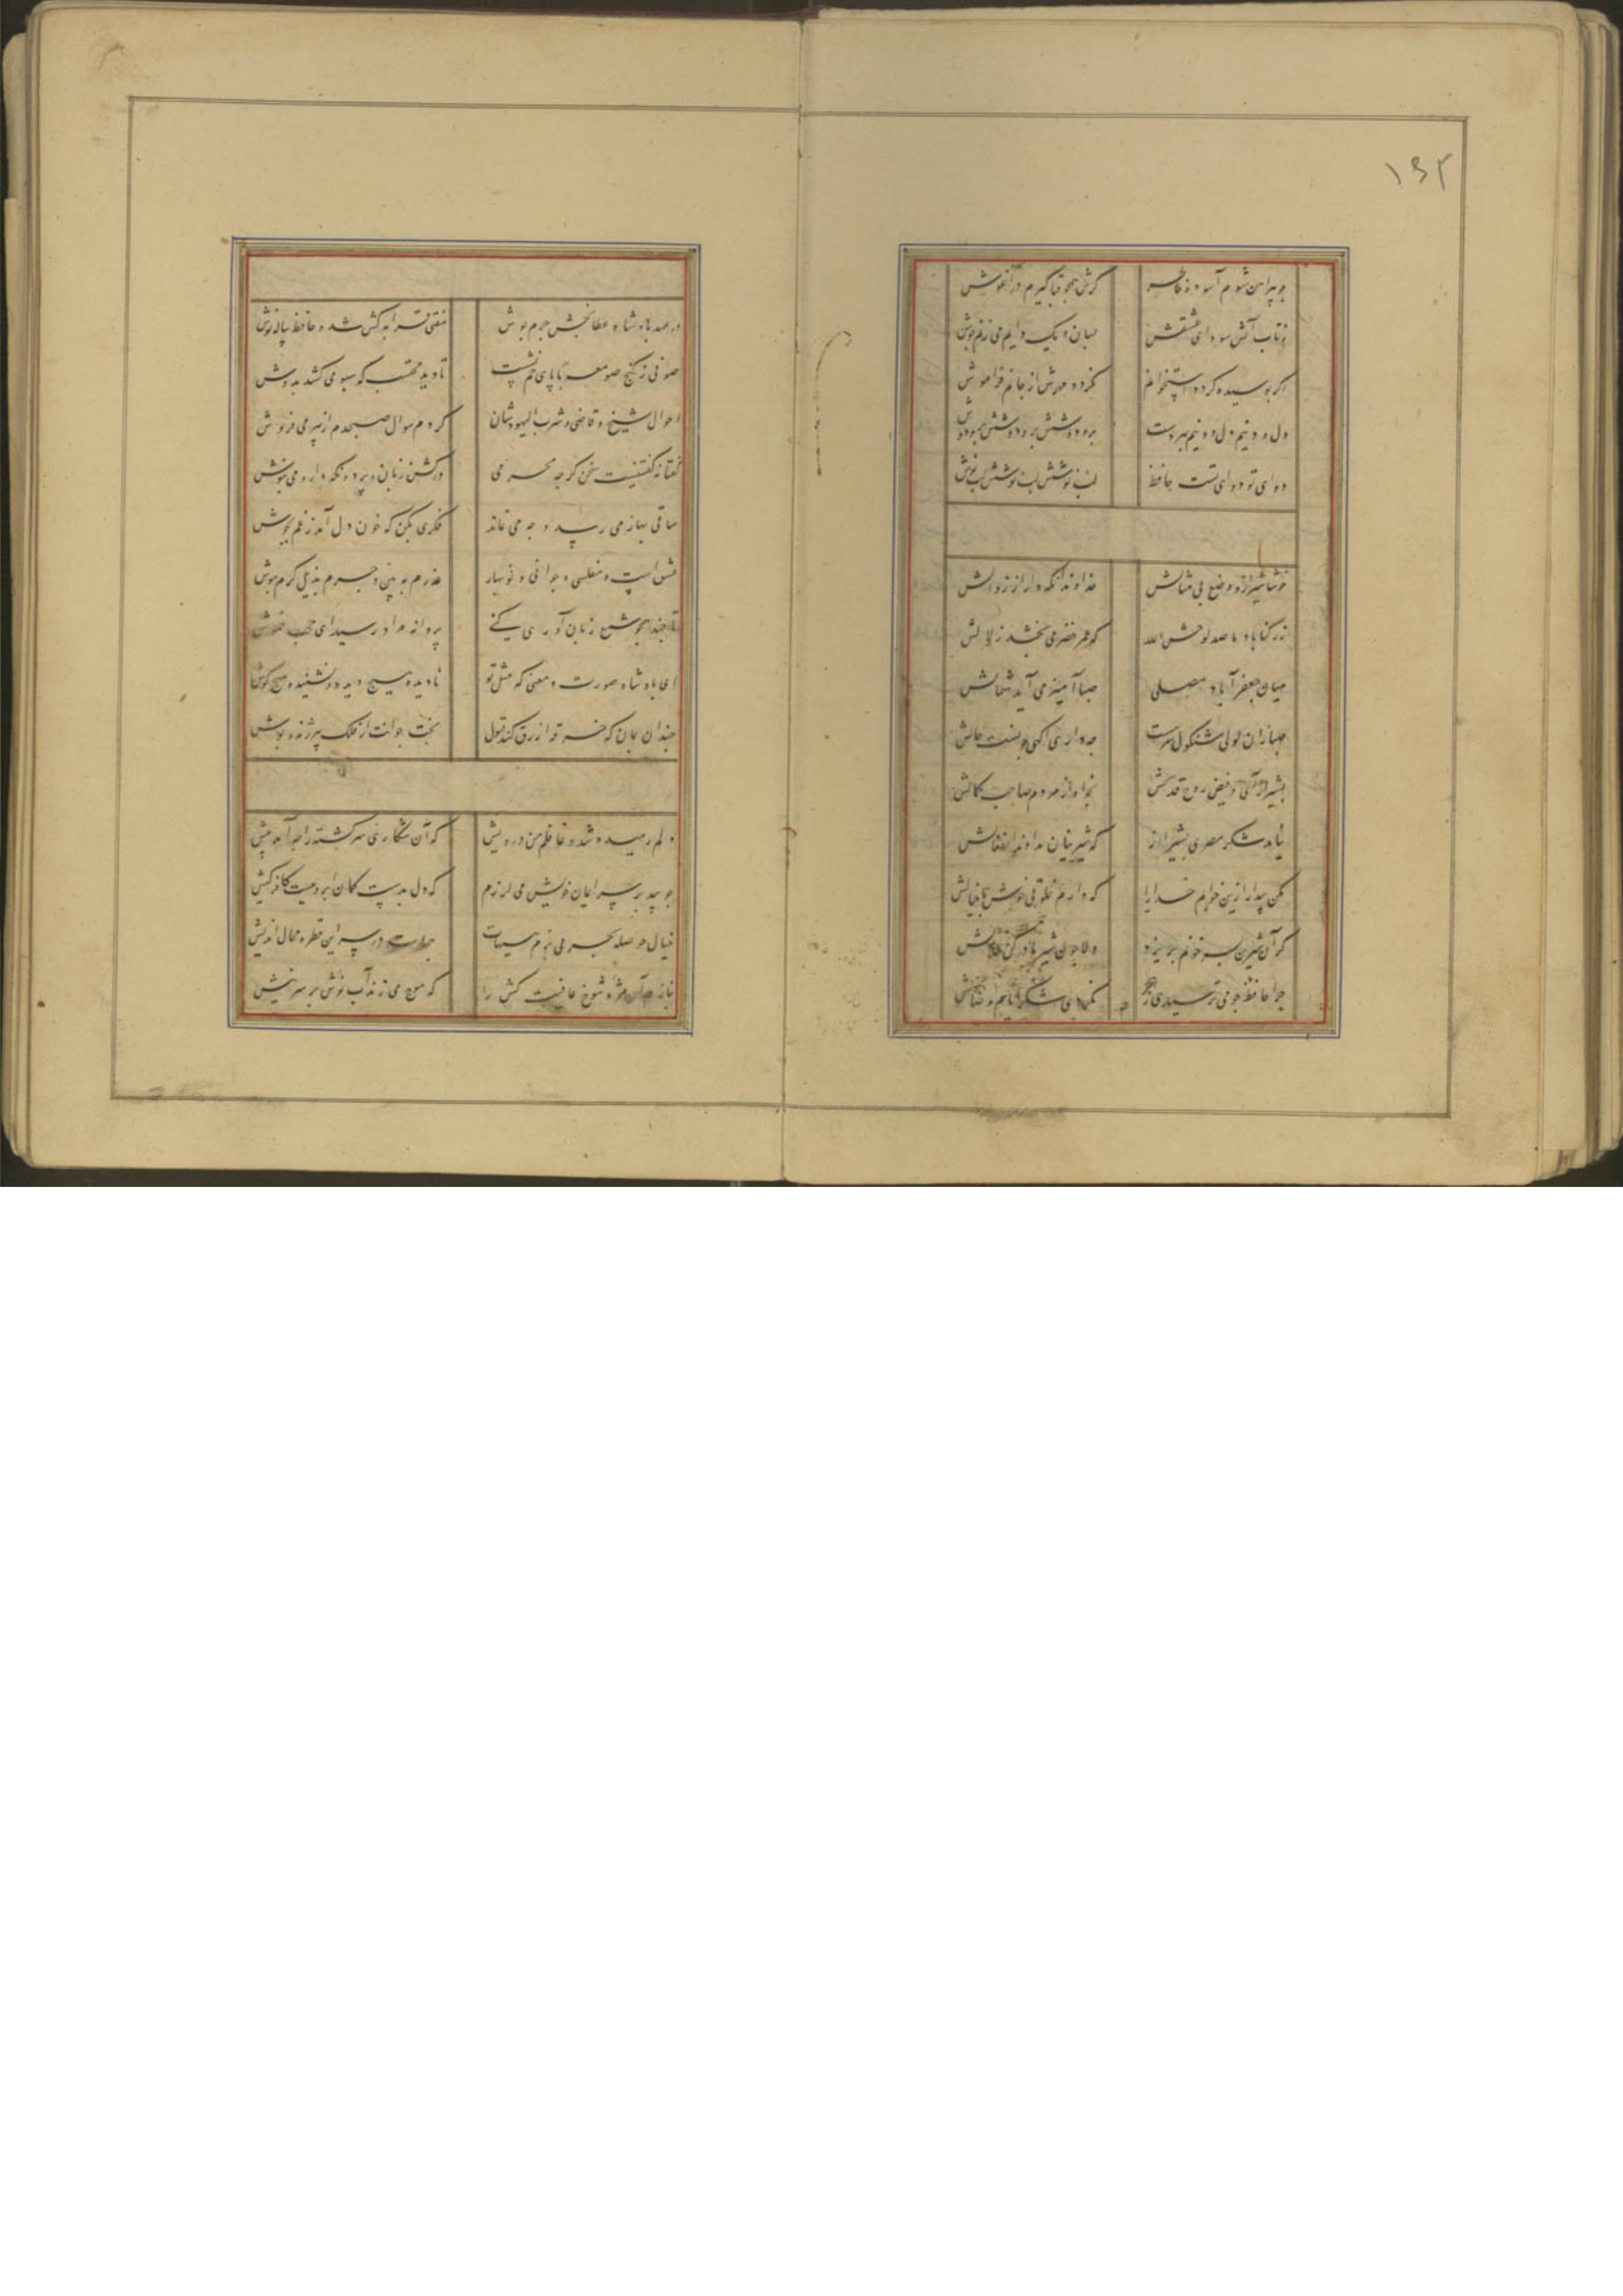 ۱۳۲
چو پیراهن شوم آسوده خاطر
کرش همچو قبا کیرم در آغوش
ز تاب آتش سودای عشقش
بسان دیک دایم می زنم جوش
اکر بوسیده کردد استخوانم
نکردد مهرش از جانم فراموش
دل و دینم دل و دینم ببردست
بر و دوشش بر و دوشش بر و دوش
دوای تو دوای تست حافظ
لب نوشش لب نوشش لب نوش
خوشا شیراز و وضع بی مثالش
خداوندا نکه دار از زوالش
ز رکناباد ما صد لوحش الله
که عمر خضر می بخشد زلالش
میان جعفرآباد و مصلی
صبا آمیز می آید شمالش
صبا زان لولی شنکول سرمست
چه داری اکهی چونست حالش
بشیراز آی و فیض روح قدسش
بخواه از مردم صاحب کمالش
نیابد شکر مصری بشیراز
که شیرینان نداوند انفعالش
مکن بیدار ازین خوابم خدا را
که دارم خلوتی خوش با خیالش
کر آن شیرین پسر خونم بریزد
دلا چون شیر مادر کن حلالش
چرا حافظ چو می ترسیدی از هجر
نکردی شکر ایام وصالش
در عهد پادشاه عطابخش جرم پوش
مفتی قرابه کش شد و حافظ پیاله نوش
صوفی ز کنج صومعه با پای خم نشست
تا دید محتسب که سبو می کشد بدوش
احوال شیخ و قاضی و شرب الیهودشان
کردم سوال صبحدم از پیر می فروش
گفتا نه گفتنیست سخن گرچه محرمی
درکش زبان و پرده نکه دار و می بنوش
ساقی بهار می رسد و وجه می نماند
فکری بکن که خون دل آمد ز غم بجوش
عشق است و مفلسی و جوانی و نوبهار
عذرم به بین و جرم بذیل کرم بپوش
تا چند همچو شمع زبان آوری کنی
پروانه مراد رسید ای محب خموش
ای پادشاه صورت و معنی که مثل تو
نادیده هیچ دیده و نشنیده هیچ کوش
چندان بمان که خرقه ازرق کند قبول
بخت جوانت از فلک پیر ژنده پوش
دلم رمیده شد و غافلم من درویش
که آن شکاری سرکشته را چه آمد پیش
چو بید بر سر ایمان خویش می لرزم
که دل بدست کمان ابرویست کافر کیش
خیال حوصله بحر می پزم هیهات
چهاست در سر این قطره محال اندیش
بنازم آن مژه شوخ عافیت کش را
که موج می زندش آب نوش بر سر نیش